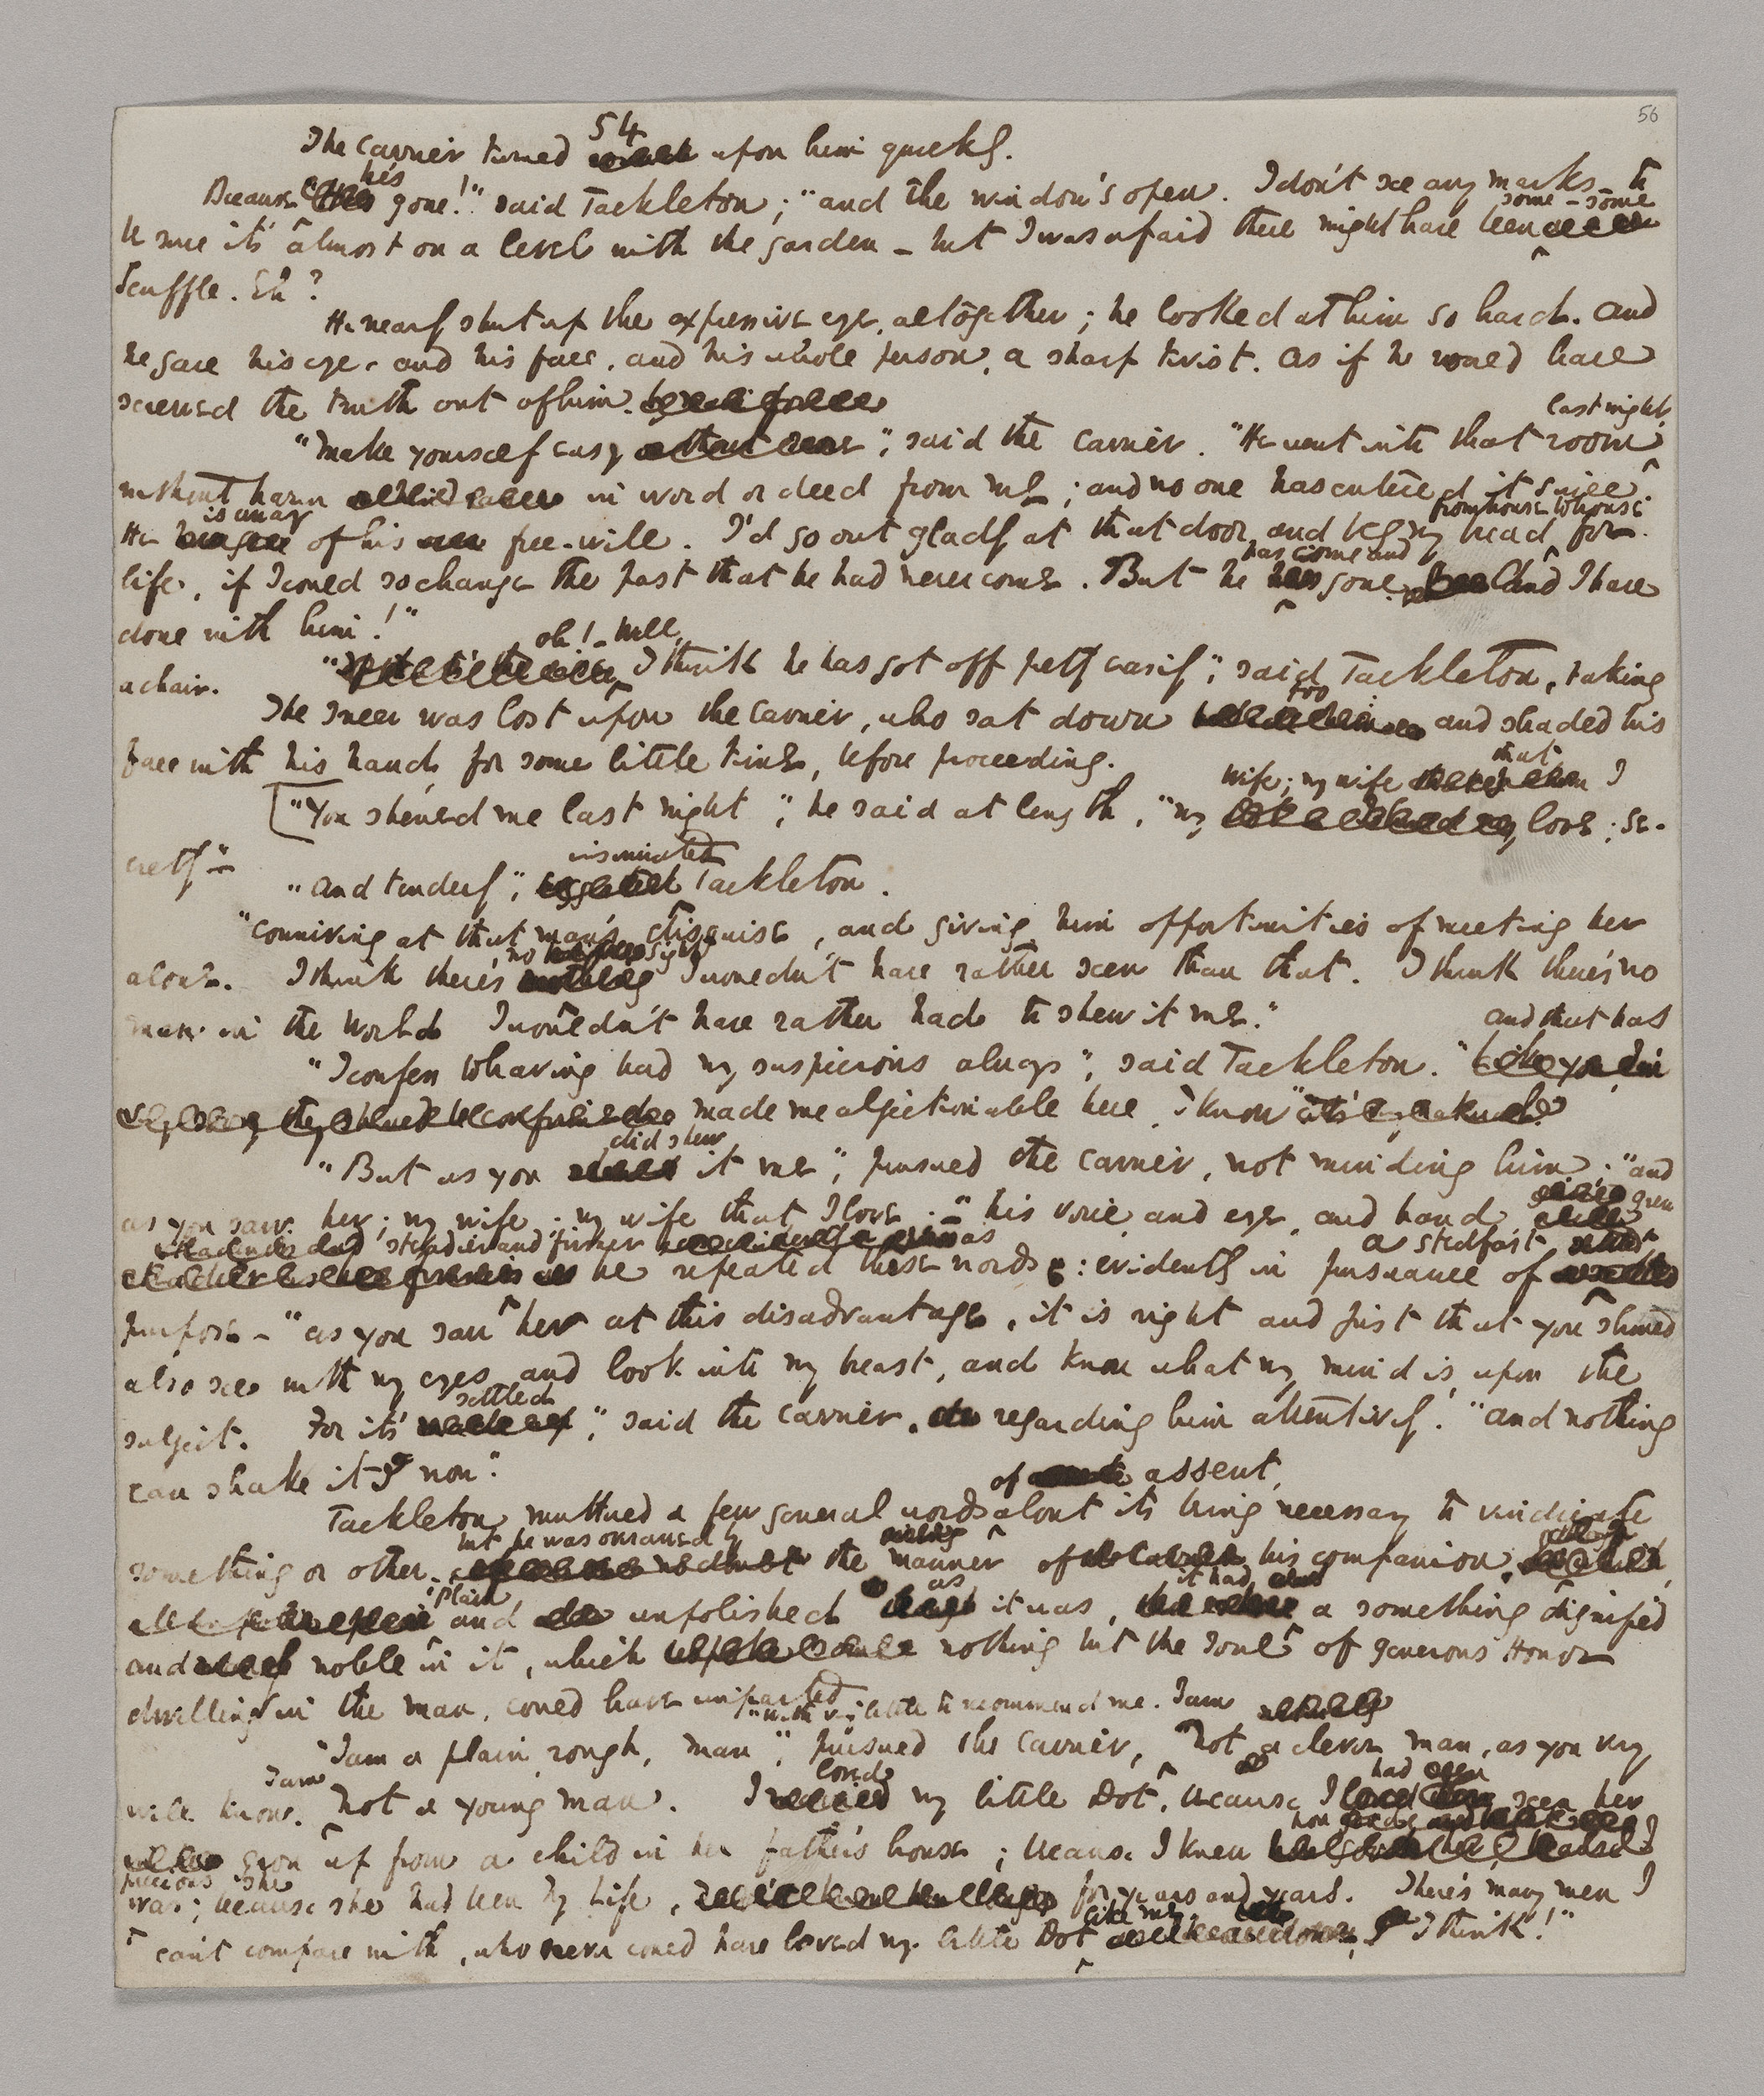 56
54
The Carrier turned upon him quickly.
Because he's gone!" said Tackleton; "and the window's open. I don't see any marks – to
be sure it's almost on a level with the garden – but I was afraid there might have been some – some
scuffle. Eh?
He nearly shut up the expressive eye, altogether; he looked at him so hard. And
he gave his eye, and his face, and his whole person, a sharp twist. As if he would have
screwed the truth out of him.
"Make yourself easy", said the Carrier. "He went into that room last night,
without harm in word or deed from me; and no one has entered it since.
He is away of his free-will. I'd go out gladly at that door, and beg my bread from house to house for
life, if I could so change the past that he had never come. But he has come and gone. And I have
done with him!"
"Oh! – Well, I think he has got off pretty easily", said Tackleton, taking
a chair.
The sneer was lost upon the Carrier, who sat down too and shaded his
face with his hand, for some little time, before proceeding.
"You shewed me last night", he said at length, "my wife; my wife that I love; se-
cretly" –
"And tenderly", insinuated Tackleton.
"Conniving at that man's disguise, and giving him opportunities of meeting her
alone. I think there's no sight I wouldn't have rather seen than that. I think there's no
man in the world I wouldn't have rather had to shew it me."
"I confess to having had my suspicions always", said Tackleton. "And that has
made me objectionable here, I know"
"But as you did shew it me", pursued the Carrier, not minding him; "and
as you saw her; my wife; my wife that I love –" his voice, and eye, and hand, grew
steadier and firmer as he repeated these words: evidently in pursuance of a stedfast
purpose – "as you saw her at this disadvantage, it is right and just that you should
also see with my eyes, and look into my breast, and know what my mind is, upon the
subject. For it's settled", said the Carrier, regarding him attentively. "And nothing
can shake it now."
Tackleton muttered a few general words of assent, about its being necessary to vindicate
something or other; but he was overawed by the manner of his companion.
Plain and unpolished as it was, it had a something dignified
and noble in it, which nothing but the soul of generous Honor
dwelling in the man, could have imparted.
"I am a plain, rough, man", pursued the Carrier, "with very little to recommend me. I am not a clever man, as you very
well know. I am not a young man. I loved my little Dot, because I had seen her
grow up from a child in her father's house; because I knew how precious she
was; because she had been my life, for years and years. There's many men I
can't compare with, who never could have loved my little Dot like me, I think!"